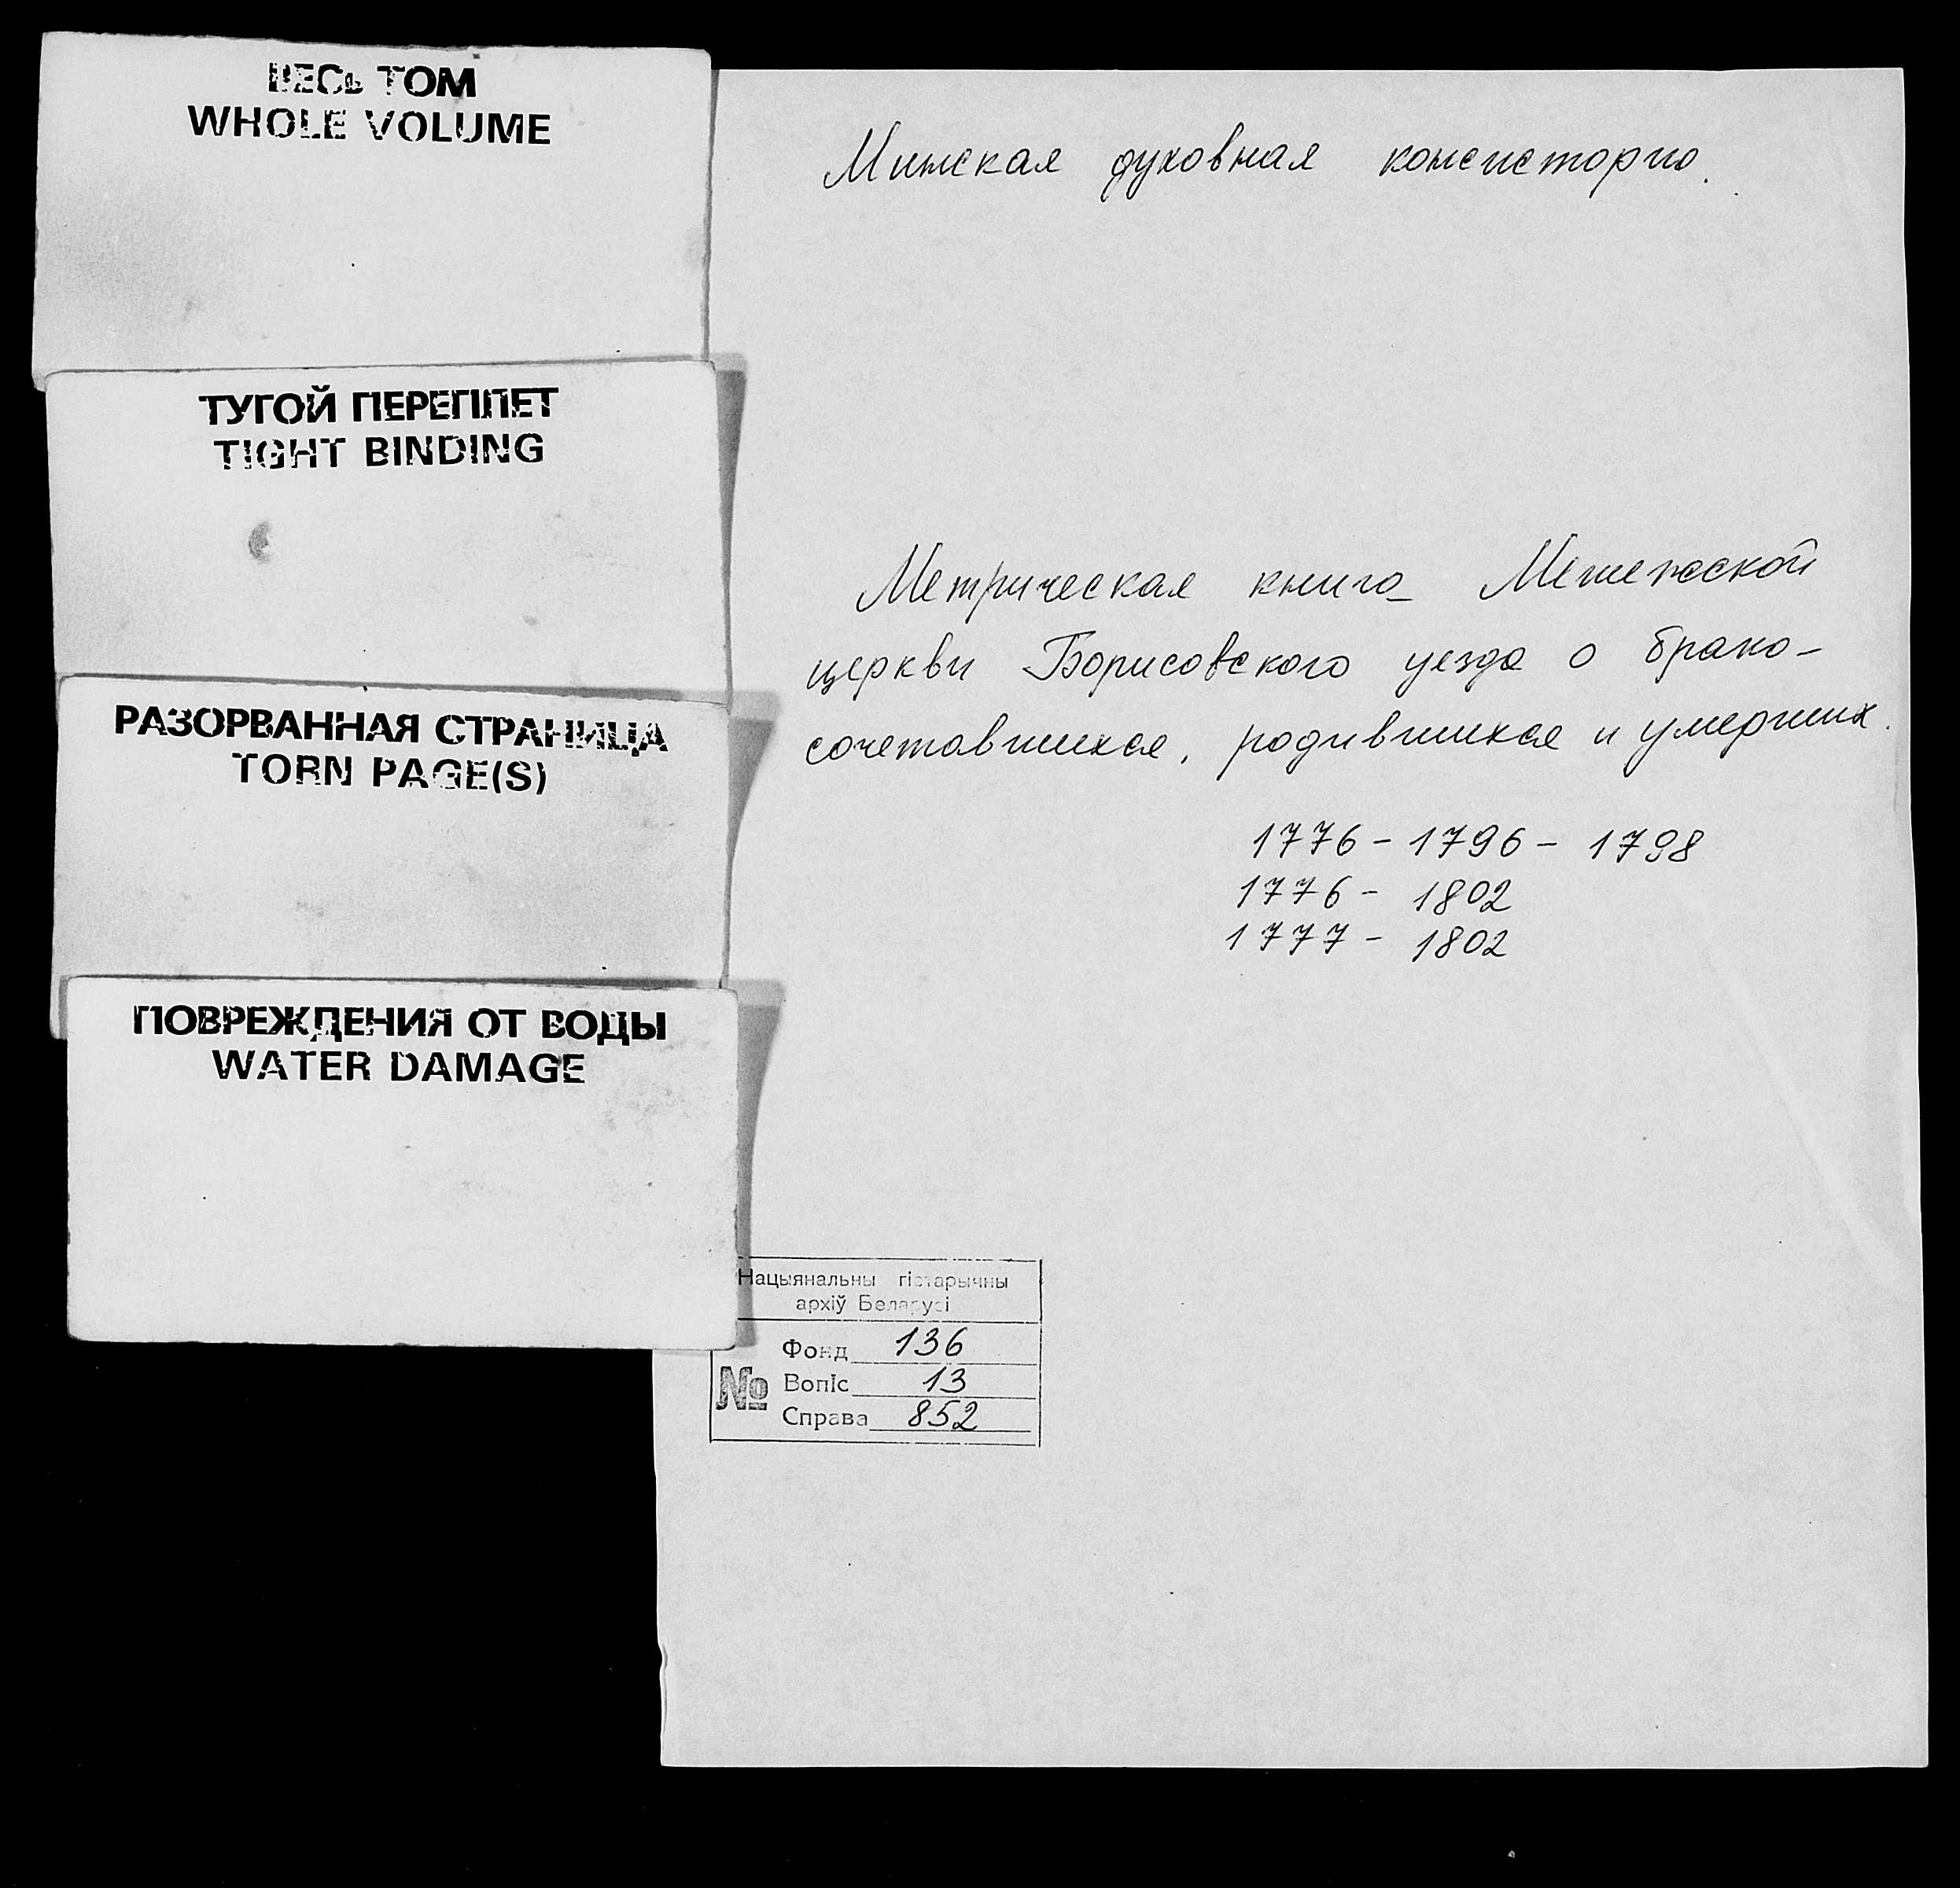 ВЕСЬ ТОМ
WHOLE VOLUME
ТУГОЙ ПЕРЕПЛЕТ
TIGHT BINDING
РАЗОРВАННАЯ СТРАНИЦА
TORN PAGE(S)
ПОВРЕЖДЕНИЯ ОТ ВОДЫ
WATER DAMAGE
Минская духовная консистория.
Метрическая книга
церкви Борисовского уезда о брако-
сочетавшихся, родившихся и умерших.
1776 - 1796 - 1798
1776 - 1802
1777 - 1802
Нацыянальны гістарычны
архіў Беларусі
Фонд 136
№ Вопіс 13
Справа 852